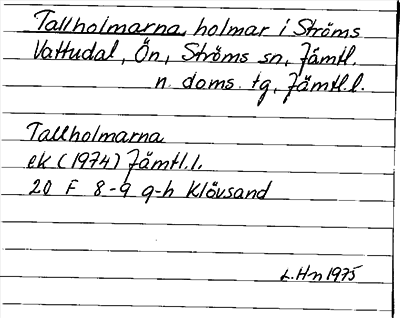 Tallholmarna, holmar i Ströms
Vattudal, Ön, Ströms sn, Jämtl.
n. doms. tg, Jämtl.l.
Tallholmarna
ek (1974) Jämtl.l.
20 F 8-9 g-h Klövsand
L.Hn 1975